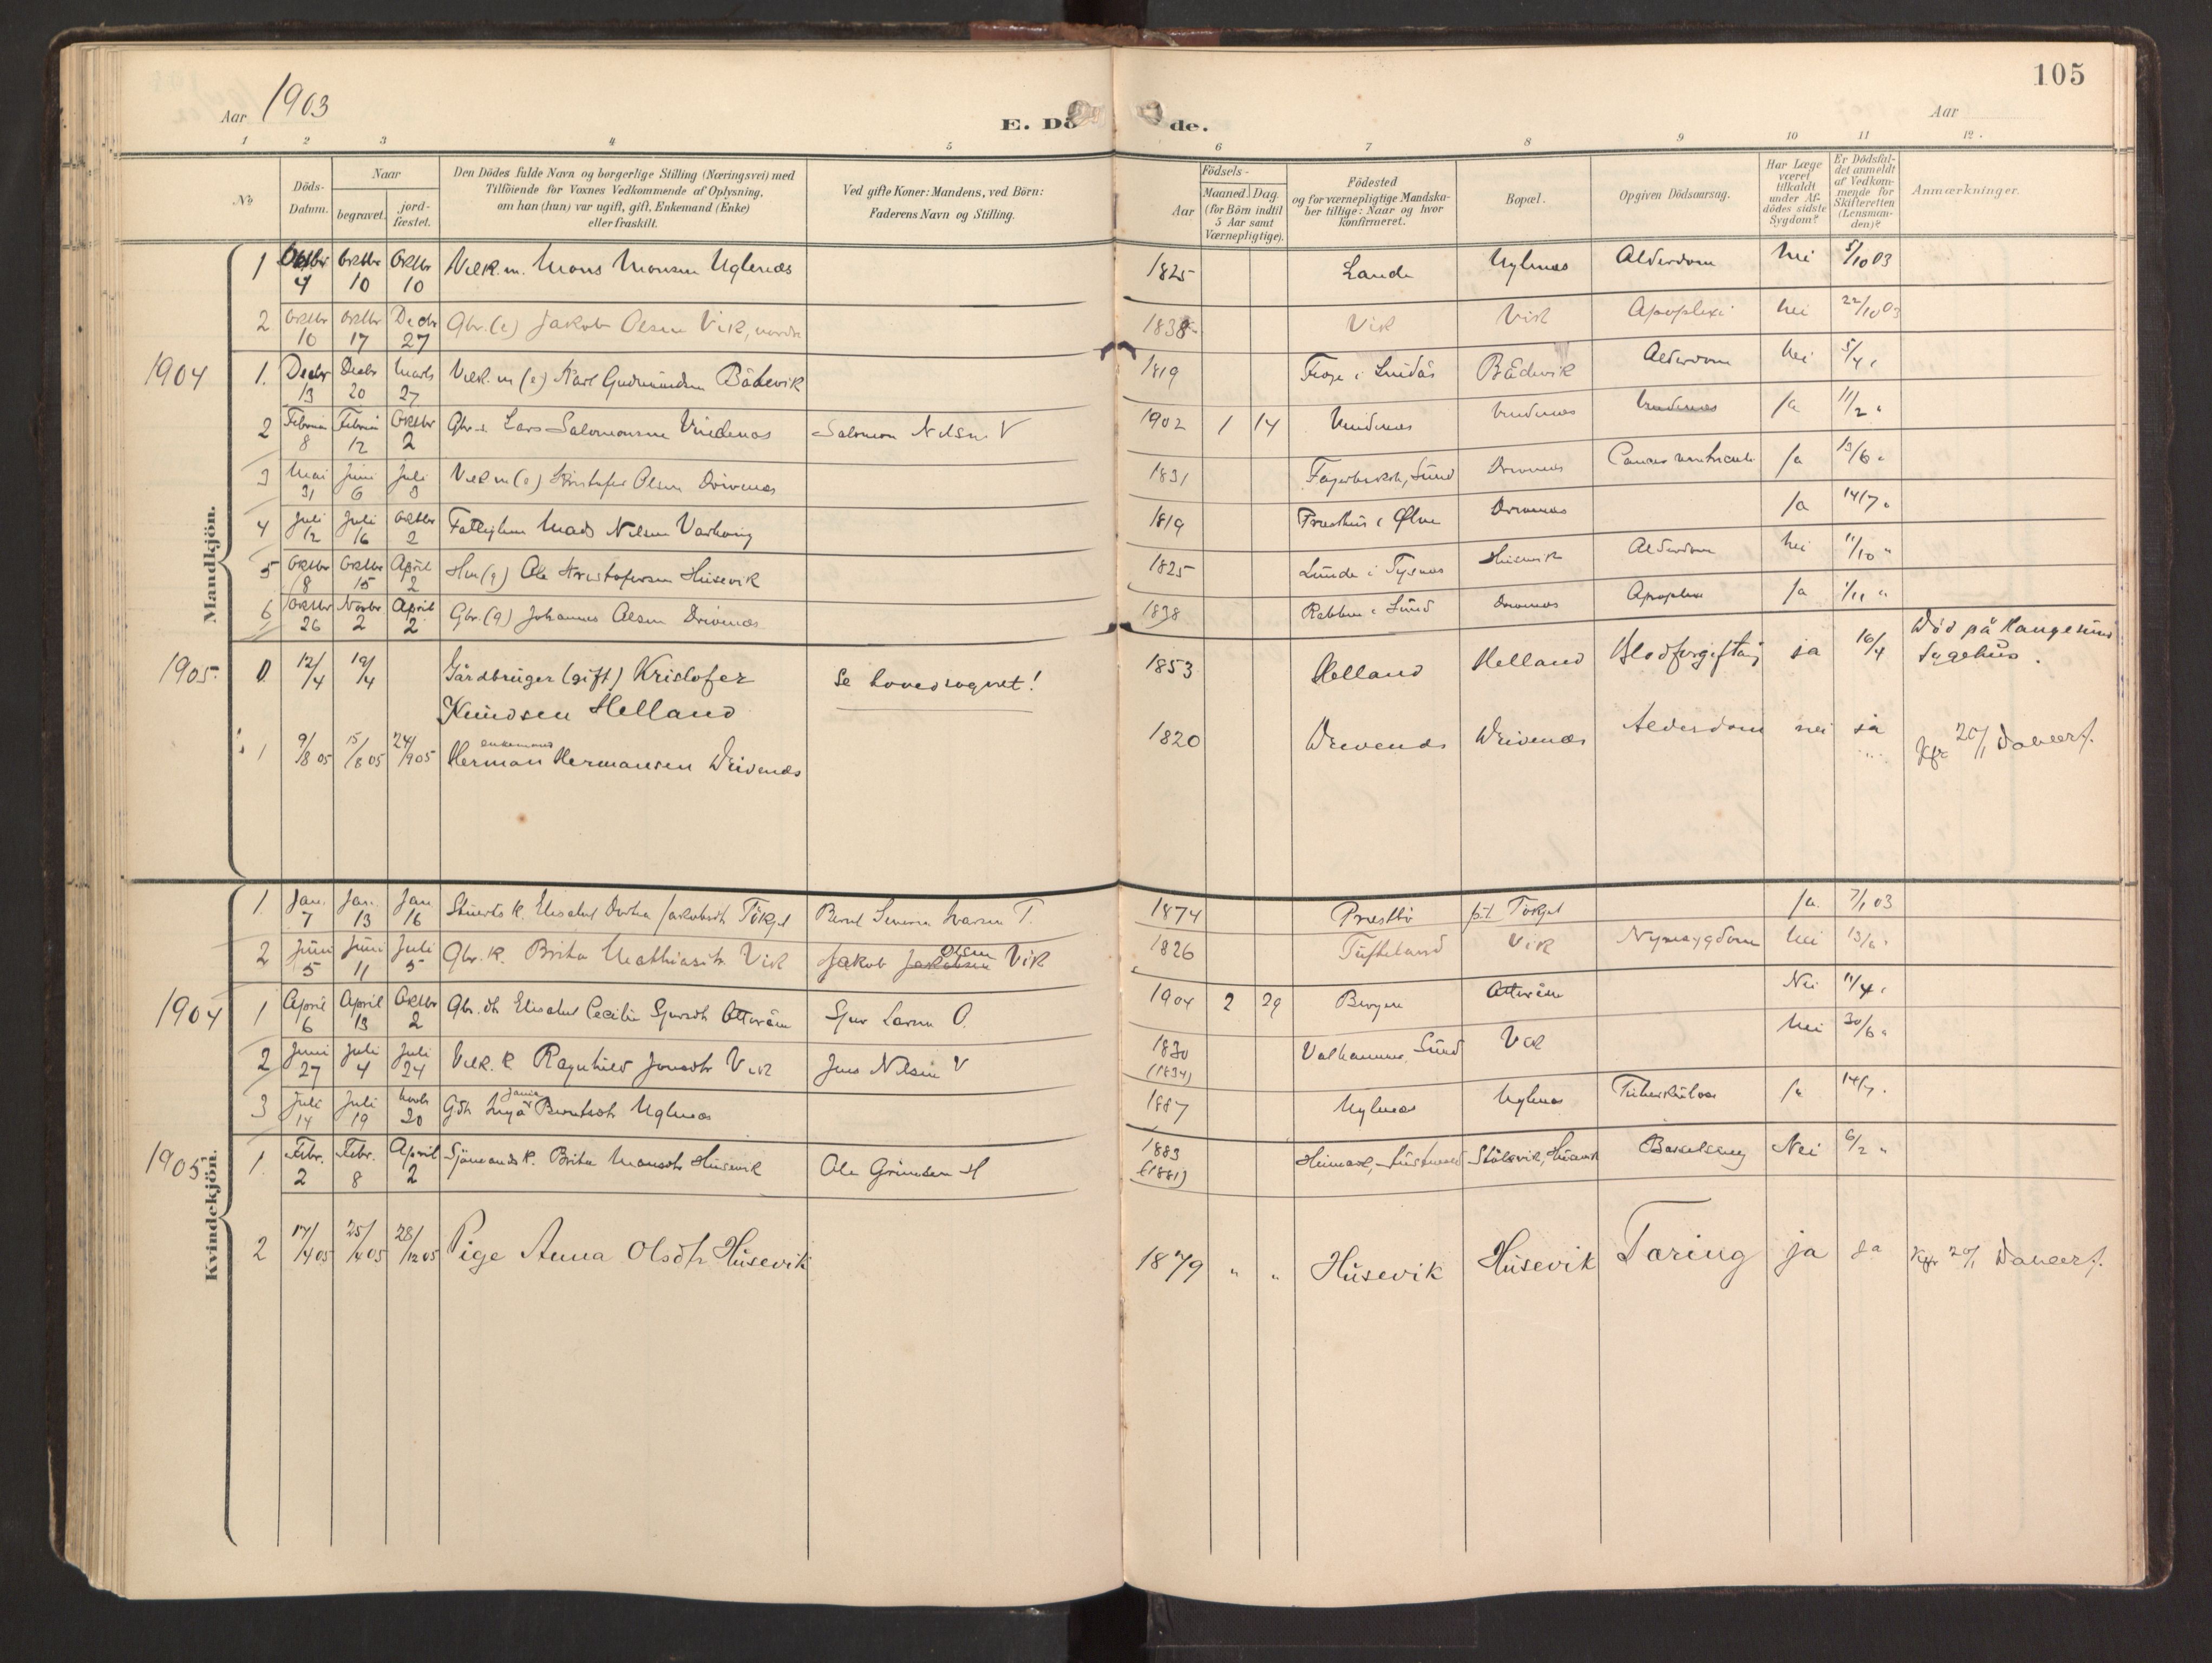 105
Aar 1903
E. Dö
de.
Aar
1 2 3 4 5 6 7 8 9 10 11 12.
No
Döds-Datum.
Naar
begravet.
jord-fæstet.
Den Dödes fulde Navn og borgerlige Stilling (Næringsvei) med
Tilföiende for Voxnes Vedkommende af Oplysning,
om han (hun) var ugift, gift, Enkemand (Enke)
eller fraskilt.
Ved gifte Koner: Mandens, ved Börn:
Faderens Navn og Stilling.
Födsels-
Aar
Maaned. Dag.
(for Börn indtil
5 Aar samt
Værnepligtige).
Födested
og for værnepligtige Mandska-
ber tillige: Naar og hvor
konfirmeret.
Bopæl.
Opgiven Dödsaarsag.
Har Læge
været
tilkaldt
under Af-
dödes sidste
Sygdom?
Er Dödsfal-
det anmeldt
af Vedkom-
mende for
Skifteretten
(Lensman-
den)?
Anmærkninger.
Mandkjön.
1 Oktbr 4 Oktbr 10 Oktbr 10 Velk. m. Mons Monsen Uglenæs 1825 Lande Uglenæs Alderdom nei 5/10 03
2 Oktbr 10 Oktbr 17 Decbr 27 Gbr. (e) Jakob Olsen Vik, nordre 1838 Vik Vik Apoplexi nei 22/10 03
1904
1. Decbr 13 Decbr 20 Marts 27 Velk. m (e) Karl Gudmundsen Bådevik 1819 Lindås Bådevik Alderdom nei 5/4 "
2 Februar 8 Februar 12 Oktbr 2 Gbr. s. Lars Salomonsen Vindenæs Salomon Nilsen V 1902 1 14 Vindenæs Vindenæs Vindenæs ja 11/2 "
3 Mai 31 Juni 6 Juli 3 Velk m (e) Kristofer Olsen Drivenæs 1831 Fagerbakk, Sund Drivenæs Cancer ventriculi ja 13/6 "
4 Juli 12 Juli 16 Oktbr 2 Fattiglem Mads Nilsen 1819 Præsthus i Ølve Drivenæs ja 14/7 "
5 Oktbr 8 Oktbr 15 April 2 Hm (g) Ole Kristofersen Husevik 1825 Lunde i Tysnes Husevik Alderdom nei 11/10 "
6 Oktbr 26 Novbr 2 April 2 Gbr. (g) Johannes Olsen Drivenæs 1838 Rabben i Sund Drivenæs Apoplexi ja 1/11 "
1905
0. 12/4 19/4 Gårdbruger (gift) Kristofer
Knudsen Helland Se hovedsognet! 1853 Helland Helland Blodforgiftnig ja 16/4 Död på Haugesund
Sygehus.
1 9/8 05 15/8 05 24/9 05 enkemand
Herman Hermansen Drivenæs 1820 Drivenæs Drivenæs Alderdom nei ja 20/1
Kvindekjön.
1. Jan. 7 Jan. 13 Jan 16 k. Elisabet Dortea Jakobsdt Tökjel T. 1874 Præstbö p.t. Tökjel ja 7/1 03
2 Juni 5 Juni 11 Juli 5 Gbr. k. Brita Mathiasdt. Vik Jakob Jakobsen Olsen Vik 1826 Tufteland Vik nei 13/6 "
1904
1 April 6 April 13 Oktbr 2 Gbr. dt. Elisabet Cecilie Sjursdt Otteråen Sjur Larsen O. 1904 2 29 Bergen Otteråen Nei 11/4 "
2 Juni 27 Juli 4 Juli 24 Velk. k Ragnhild Jonsdtr Vik Jens Nilsen V 1830
(1834) Valhammer, Sund Vik nei 30/6 "
3 Juli 14 Juli 19 Novb 20 Gdt. Inga Janna Berntsdt. Uglenæs 1887 Uglenæs Uglenæs Tuberkulose ja 14/7 "
1905
1. Febr. 2 Febr. 8 April 2 Sjömands k. Brita Monsdtr Husevik Ole H 1883
(1881) Stålevik, Husevik Barselseng Nei 6/2 "
2 17/4 05 25/4 05 28/12 05 Pige Anna Olsdtr Husevik 1879 " " Husevik Husevik Tæring ja ja 20/1